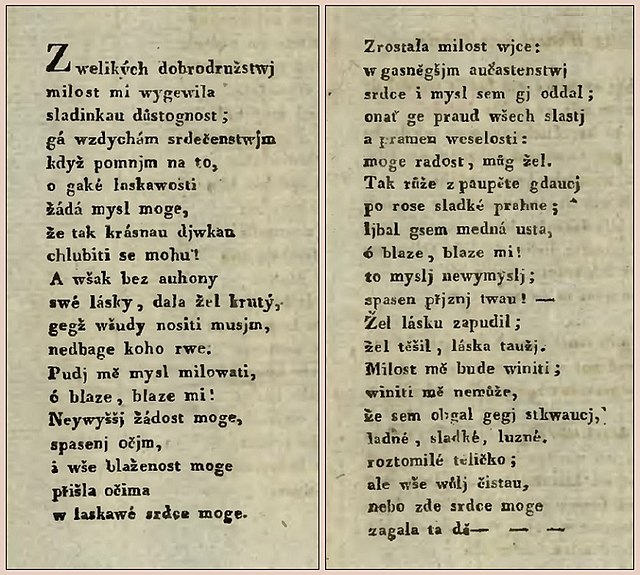 Z welikých dobrodružstwj
milost mi wygewila
sladinkau důstognost;
gá wzdychám srdečenstwjm
když pomnjm na to,
o gaké laskawosti
žádá mysl moge,
že tak krásnau djwkau
chlubiti se mohu!
A wšak bez auhony
swé lásky, dala žel krutý,
gegž wšudy nositi musjm,
nedbage koho rwe.
Pudj mě mysl milowati,
ó blaze, blaze mi!
Neywyššj žádost moge,
spasenj očjm,
i wše blaženost moge
přišla očima
w laskawé srdce moge.
Zrostała milost wjce:
w gasněgšjm aučastenstwj
srdce i mysl sem gj oddal;
onať ge praud wšech slastj
a pramen weselosti:
moge radost, můg žel.
Tak růže z paupěte gdaucj
po rose sladké prahne;
ljbal gsem medná usta,
ó blaze, blaze mi!
to myslj newymyslj;
spasen přjznj twau! —
Žel lásku zapudil;
žel těšil, láska taužj.
Milost mě bude winiti;
winiti mě nemůže,
že sem obgal gegj stkwaucj,
ladné, sladké, luzné.
roztomilé teličko;
ale wše wůlj čistau,
nebo zde srdce moge
zagala ta dě— — —